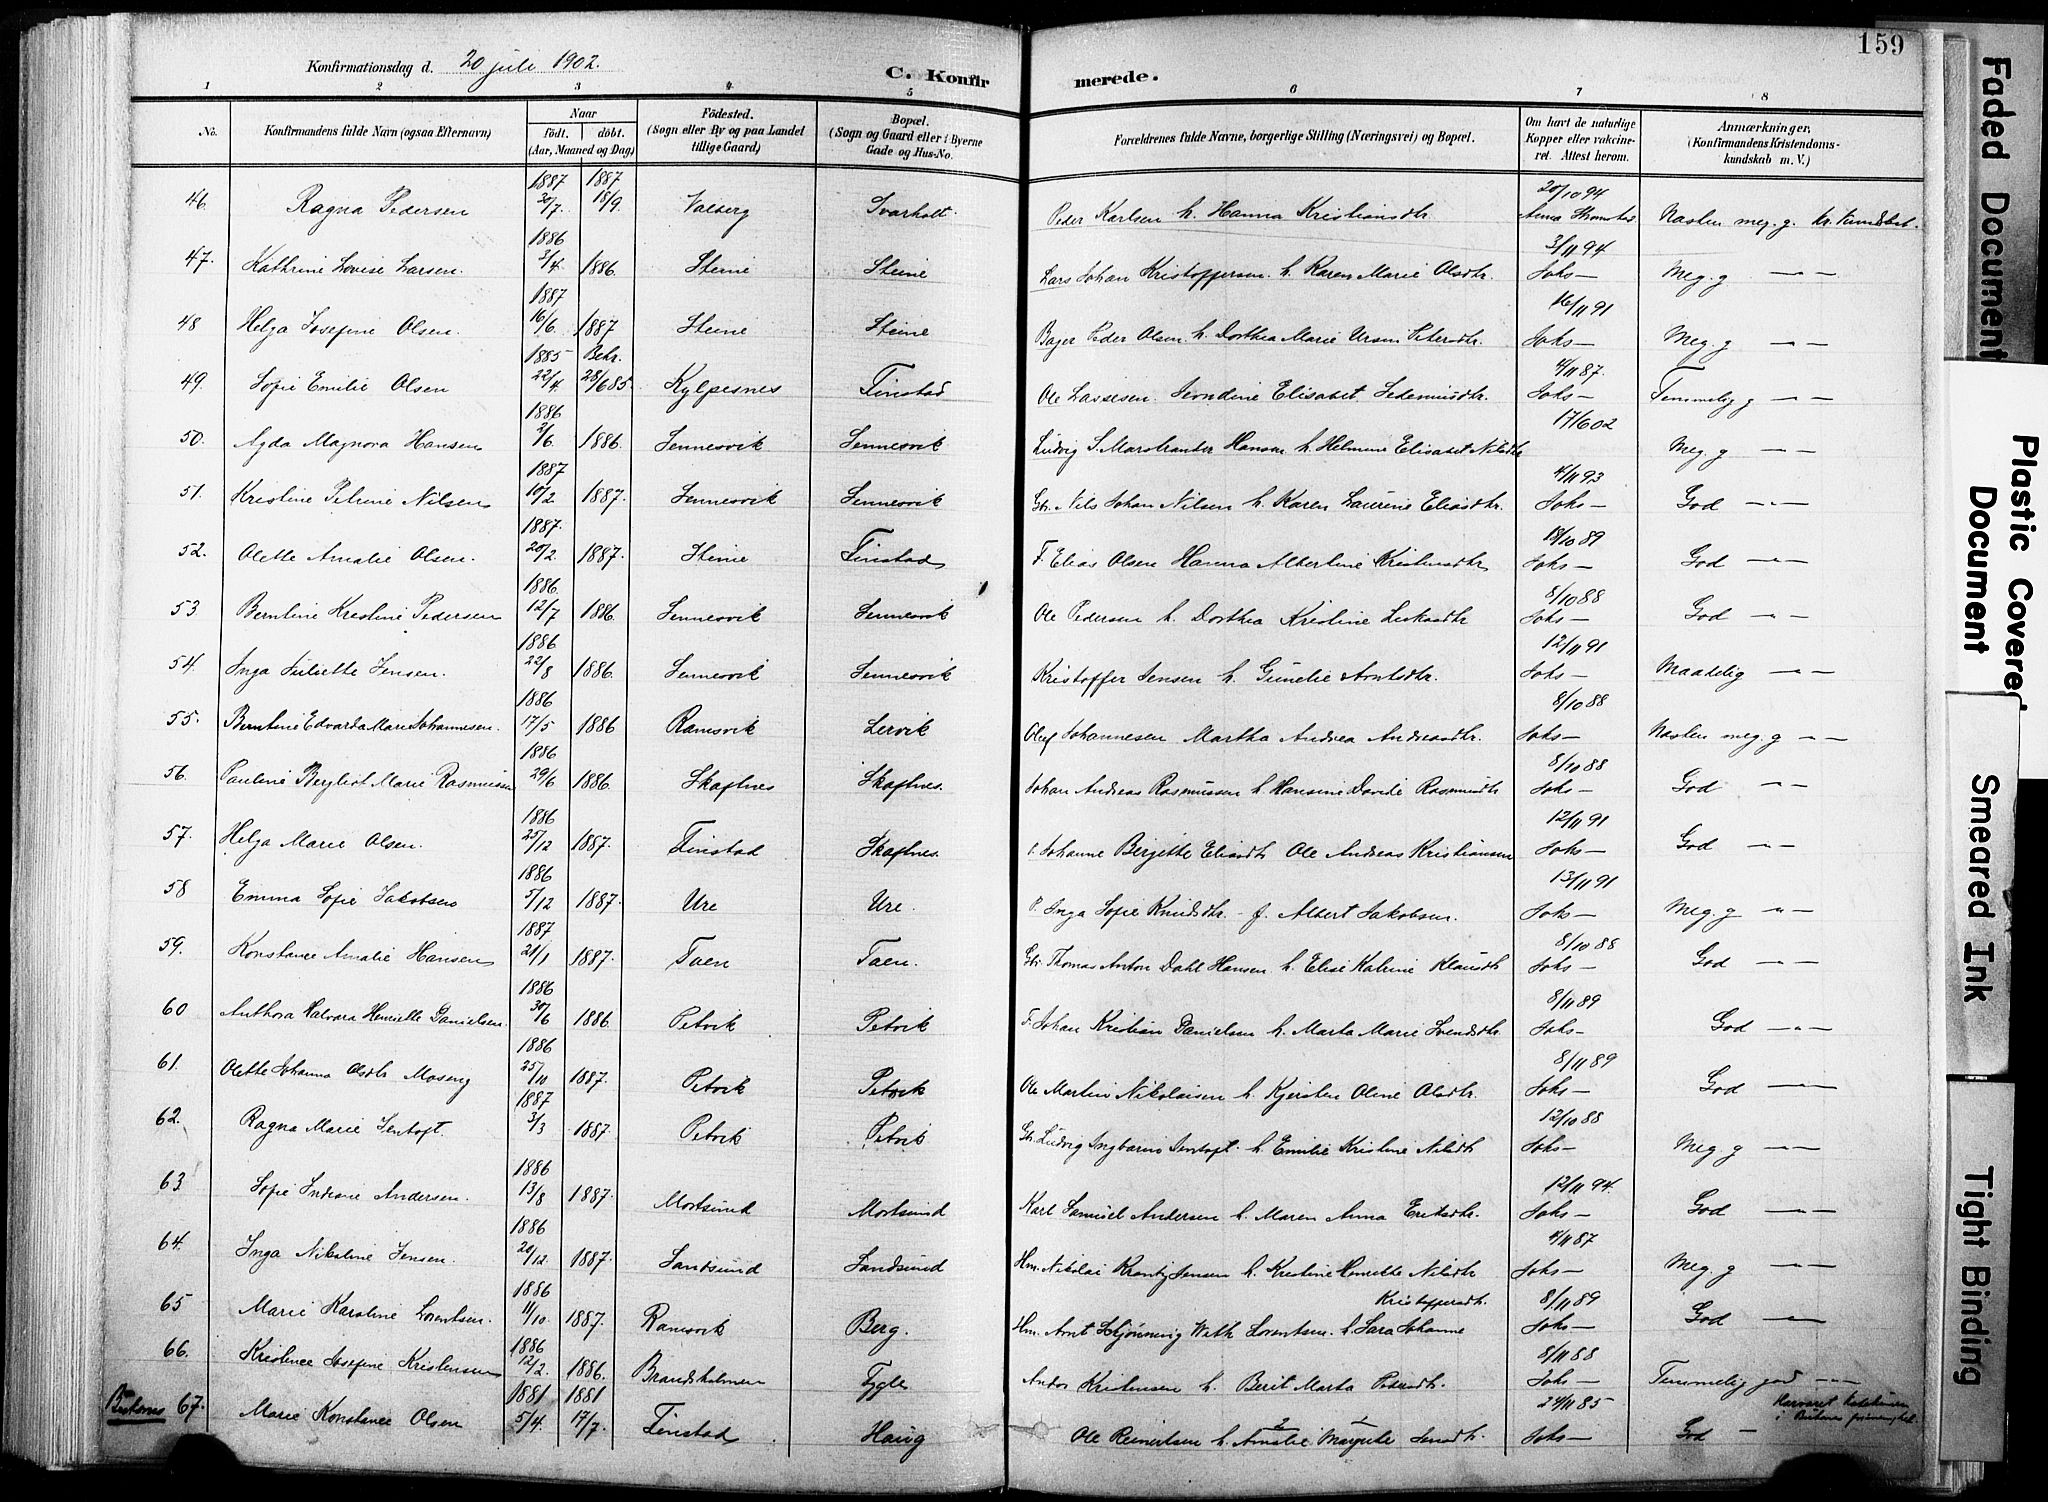 159
Konfirmationsdag d. 20 juli 1902.
C. Konfirmerede.
1 2 3 4 5 6 7 8
No.
Konfirmandens fulde Navn (ogsaa Efternavn)
Naar
födt. döbt.
(Aar, Maaned og Dag)
Födested.
(Sogn eller By og paa Landet tillige Gaard)
Bopæl.
(Sogn og Gaard eller i Byerne Gade og Hus-No.
Forældrenes fulde Navne, borgerlige Stilling (Næringsvei) og Bopæl.
Om havt de naturlige Kopper eller vakcineret. Attest herom.
Anmærkninger,
(Konfirmandens Kristendomskundskab m. V.)
46. Ragna Pedersen 1887 20/7. 1887 18/9. Valberg Svarholt. Peder Karlsen h. Hanna Kristiansdtr. 20/10 94 Næsten meg. g.
47. Kathrine Lovise Larsen. 1886 3/4. 1886. Steine Steine Lars Johan Kristoffersen h. Karen Marie Olsdtr. 3/11 94 Johs — Meg. g — " —
48 Helga Josefine Olsen. 1887 16/6. 1887 Steine Steine Peder Olsen h. Dorthea Marie Ursin Petersdtr. 16/11 91 Johs — Meg. g — " —
49. Sofie Emilie Olsen 1885 22/4. Bekr. 28/6 85. Kylpesnes Finstad Ole Lassesen. Elisabet 4/11 87. Johs — Temmelig g — " —
50. Agda Magnora Hansen 1886 2/6. 1886. Sennesvik Sennesvik Ludvig S. Marstrander Hansen h. Helmine Elisabet Nilsdtr 17/6 02 Meg. g — " —
51. Kristine Petrine Nilsen 1887 10/2 1887. Sennesvik Sennesvik Gbr. Nils Johan Nilsen h. Karen Laurine Eliasdtr. 4/11 93 Johs — God — " —
52. Olette Amalie Olsen. 1887. 20/2. 1887. Steine Finstad F. Elias Olsen Hanna Albertine Kristensdtr 18/10 89 Johs — God — " —
53 Berntine Kristine Pedersen 1886. 12/7 1886. Sennesvik Sennesvik Ole Pedersen h. Dorthea Kristine Lukasdtr 8/10 88 Johs — God — " —
54. Inga Juliette Jensen. 1886 22/8 1886. Sennesvik Sennesvik Kristoffer Jensen h. Gunelie Arntsdtr. 12/11 91 Johs — Maadelig — " —
55. Berntine Edvarda Marie Johannesen. 1886 17/5 1886 Ramsvik Lervik Oluf Johannesen Martha Andrea Andreasdtr. 8/10 88 Johs — Næsten meg. g — " —
56. Pauline Bergliot Marie Rasmussen 1886 29/6 1886. Skaftnes Skaftnes. Johan Andreas Rasmussen h. Hansine Davide Rasmusdtr 8/10 88 Johs — God — " —
57. Helga Marie Olsen. 1886 25/12 1887. Finstad Skaftnes. Johanne Bergitte Eliasdtr Ole Andreas Kristiansen 12/11 91 Johs — God — " —
58 Emma Sofie Jakobsen 1886 5/12 1887. Ure Ure. P. Inga Sofie Knudsdtr. - f. Albert Jakobsen. 13/11 91 Johs — Meg. g — " —
59. Konstance Amalie Hansen 1887 21/1 1887. Taen Taen. Gbr. Thomas Anton Dahl Hansen h. Elise Katrine Klausdtr 8/10 88 Johs — God — " —
60 Anthora Halvara Henrikke Danielsen. 1886 30/6 1886 Petvik Petvik F. Johan Kristian Danielsen h. Marta Marie Svendsdtr. 8/11 89 Johs — God — " —
61. Olette Johanna Olsdtr Moseng 1886 25/10 1887. Petvik Petvik Ole Martin Nikolaisen h. Kjersten Oline Olsdtr. 8/11 89 Johs — God — " —
62. Ragna Marie Jentoft. 1887 3/3 1887. Petvik Petvik Gbr. Ludvig Jentoft. h Emilie Kristine Nilsdtr 12/10 88 Johs — Meg. g — " —
63. Sofie Indiane Andersen. 1886 13/8 1887. Mortsund Mortsund Karl Samuel Andersen h. Maren Anna Eriksdtr. 12/11 94. Johs — God — " —
64. Inga Nikoline Jensen. 1886 20/12. 1887. Sandsund Sandsund Hm. Nikolai Krantz Jensen h. Kristine Henrikke Nilsdtr 4/11 87 Johs — Meg. g — " —
65 Marie Karoline Lorentsen. 1886 11/10. 1887. Ramsvik Berg. Hm. Arnt Hjønning With Lorentsen. h. Sara Johanne Kristoffersdtr. 8/11 89 Johs — God — " —
66. Kristence Josefine Kristensen 1886 12/2. 1886. Brandsholmen Tygle Andor Kristensen h. Berit Marta Petersdtr. 8/11 88 Johs — Temmelig god — " —
67. Marie Konstance Olsen 1881 5/4. 1881 17/7. Finstad Haug Ole Reinertsen h. Amalie Margrete 24/11 85 Johs — God —
Faded Document
Plastic Covered Document
Smeared Ink
Tight Binding